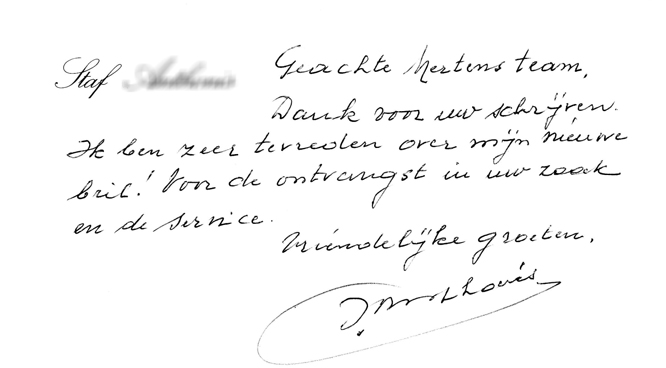 Staf
Geachte Mertens team,
Dank voor uw schrijven.
Ik ben zeer tevreden over mijn nieuwe
bril! Voor de ontvangst in uw zaak
en de service.
Vriendelijke groeten,